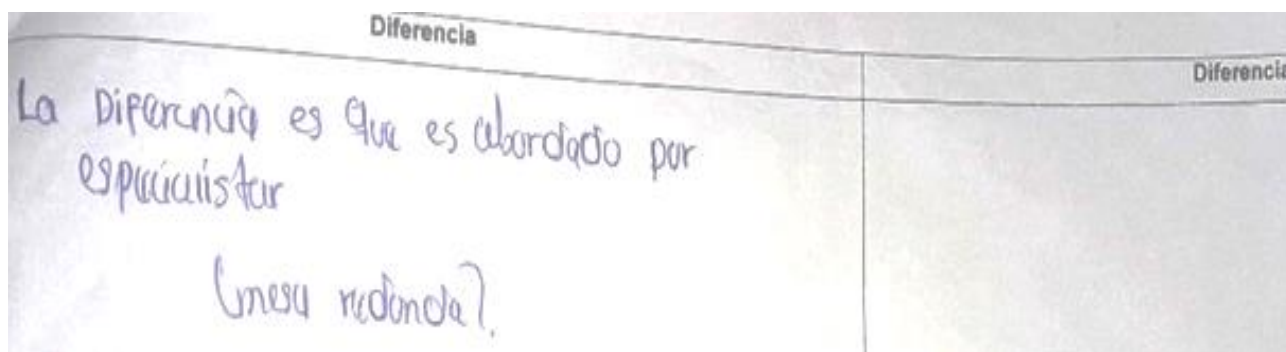 Diferencia
Diferencia
La Diferencia es que es abordado por
especialistas
(mesa redonda).